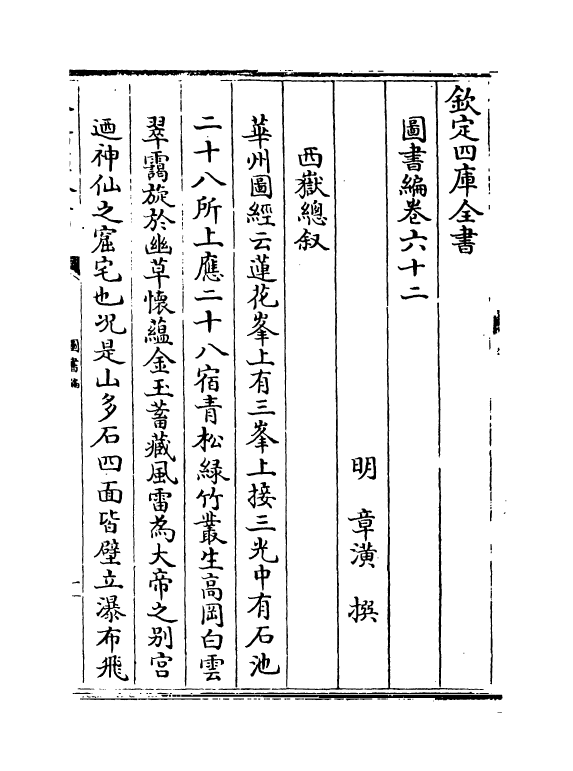 欽定四庫全書
圖書編卷六十二
明 章潢 撰
西嶽總叙
華州圖經云蓮花峯上有三峯上接三光中有石池
二十八所上應二十八宿青松綠竹叢生高岡白雲
翠靄旋於幽草懷蘊金玉蓄藏風雷為大帝之别宮
迺神仙之窟宅也况是山多石四面皆壁立瀑布飛
圖書編